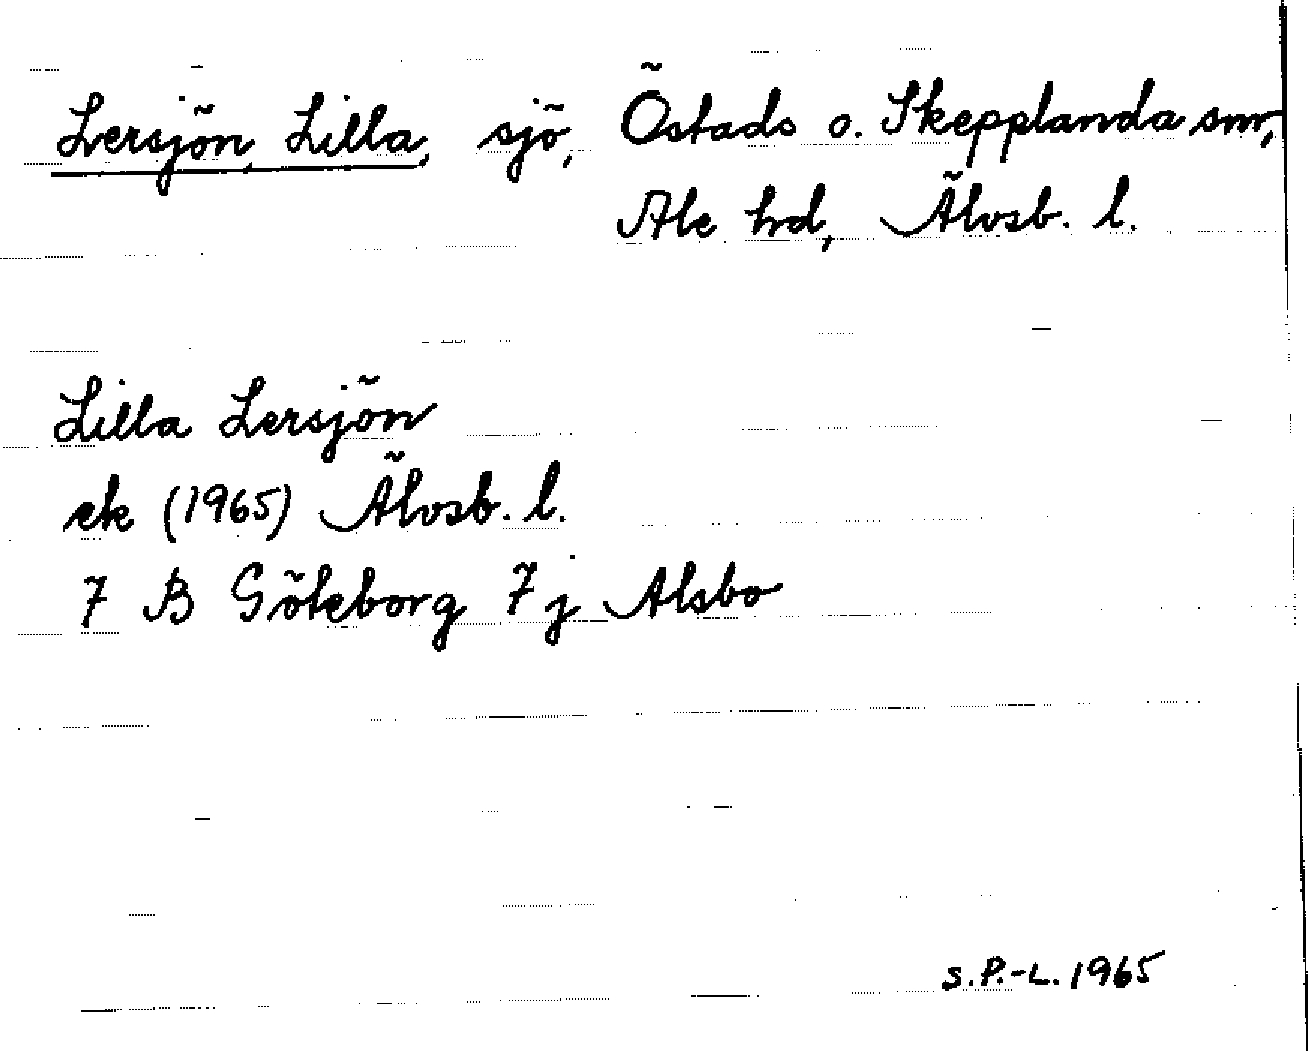 Lersjön, Lilla, sjö, Östads o. Skepplanda snr,
Ale hd, Älvsb. l.
Lilla Lersjön
ek (1965) Älvsb. l.
7 B Göteborg 7 j Alsbo
S.P.-L. 1965